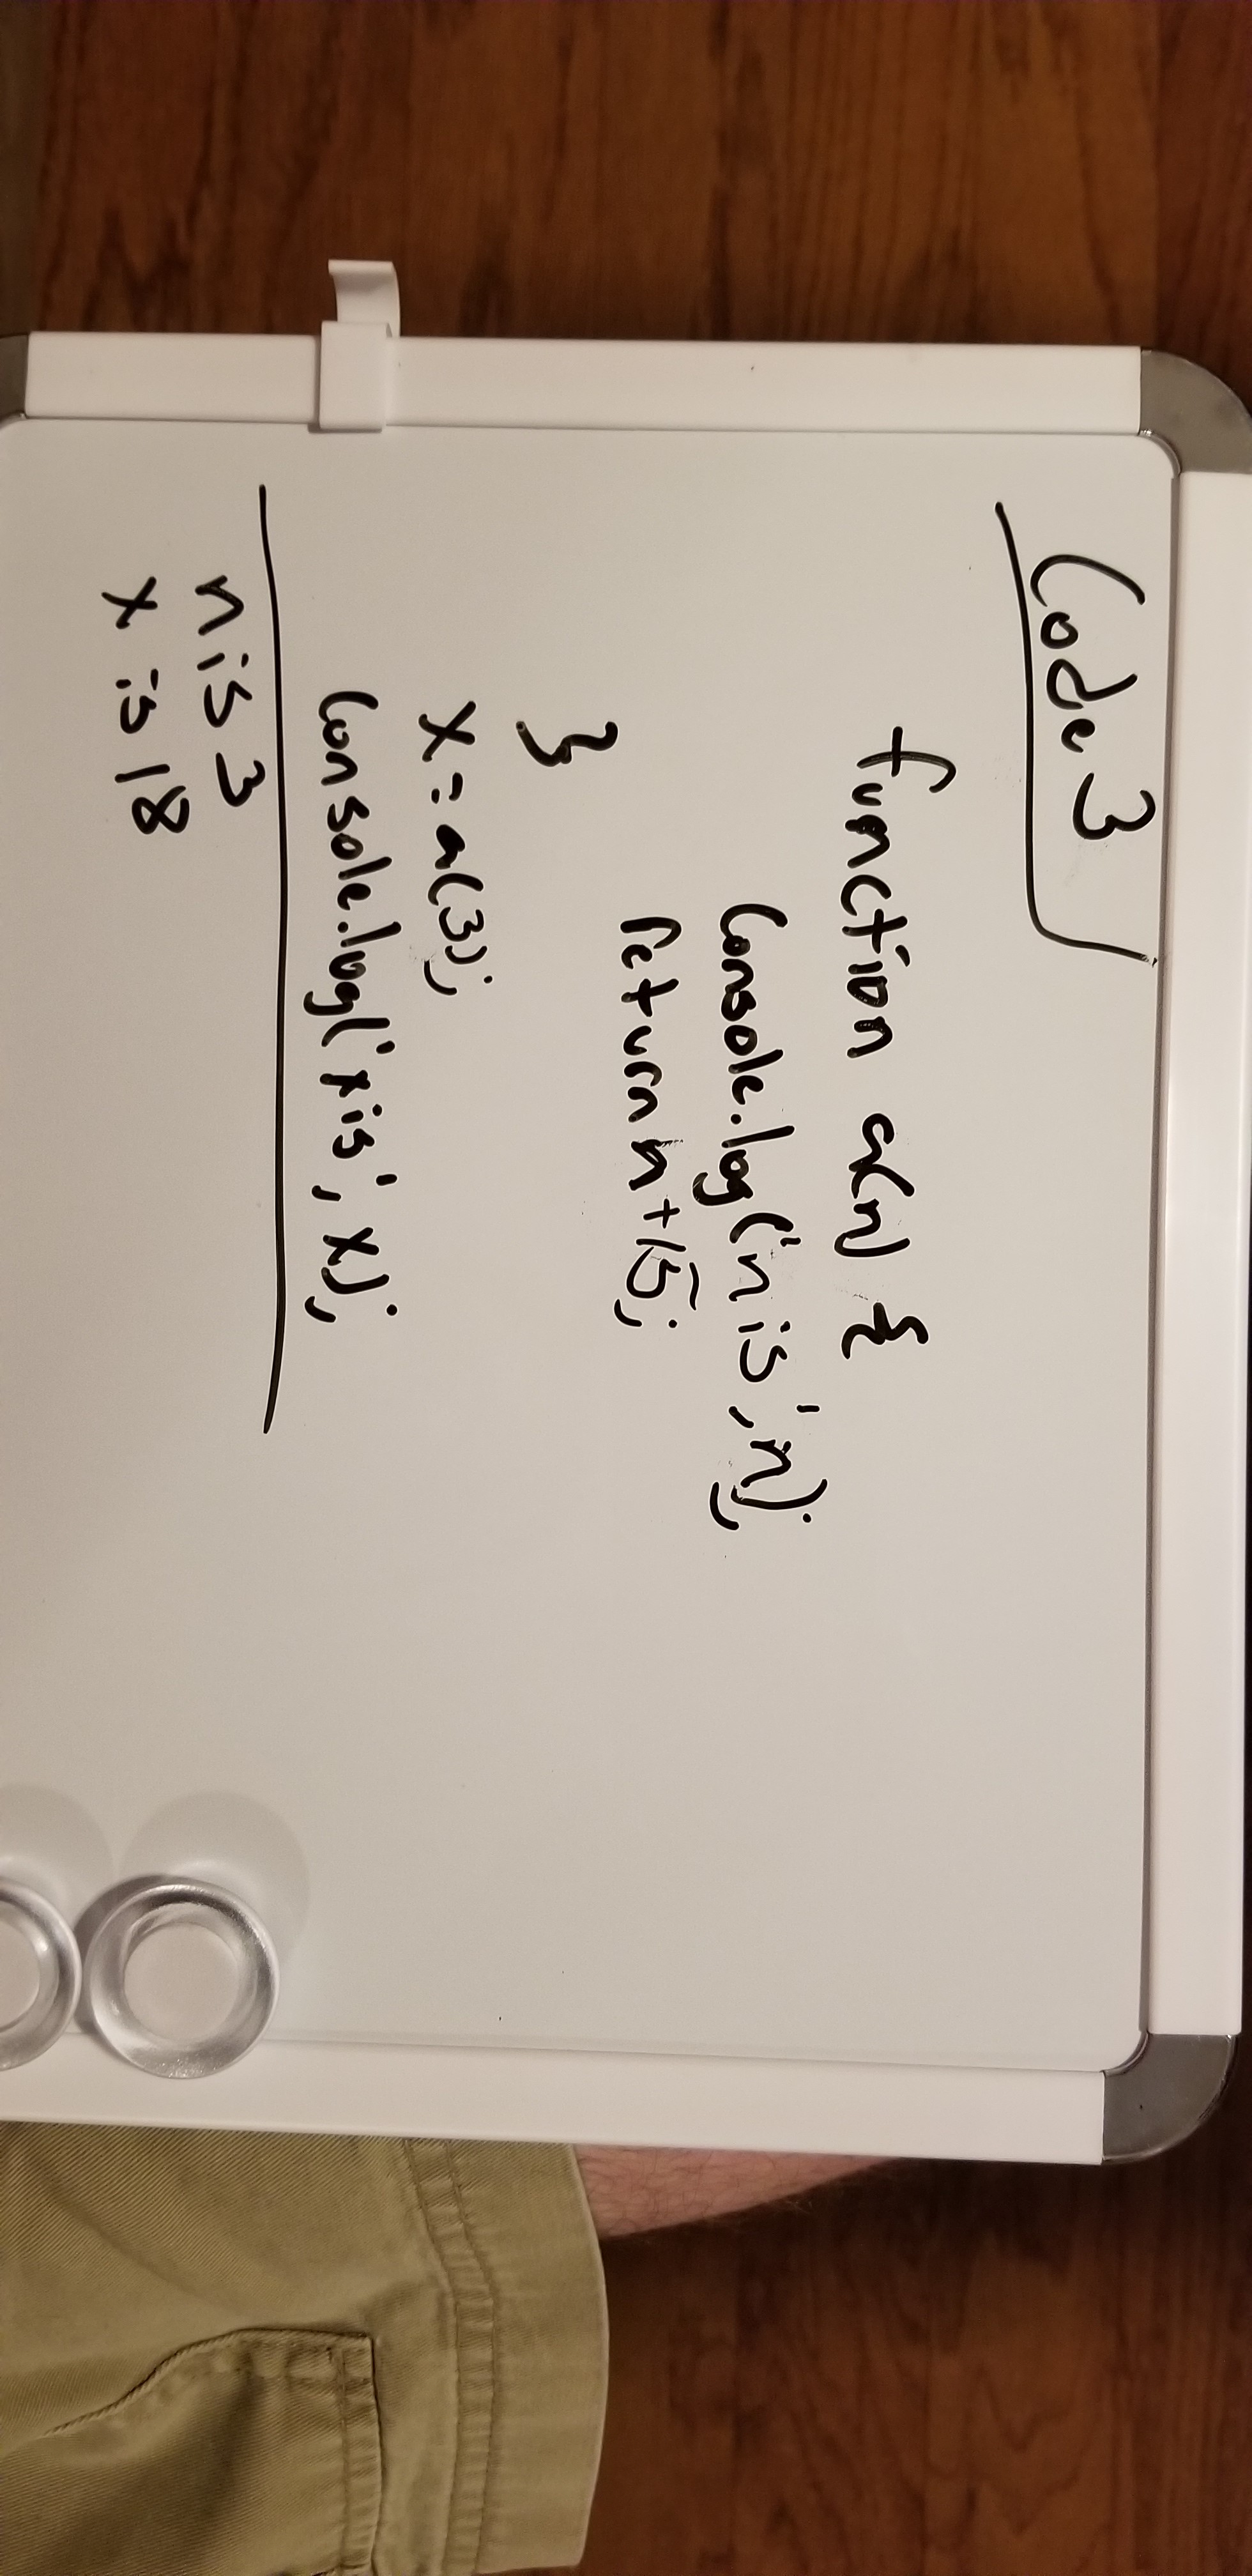 Code 3
function a(n) {
console.log('n is', n);
return n + 15;
}
x = a(3);
console.log('x is', x);
n is 3
x is 18